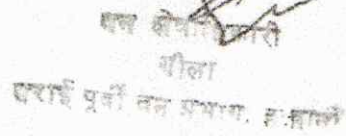 वन क्षेत्राधिकारी
गौला
तराई पूर्वी वन प्रभाग, हल्द्वानी